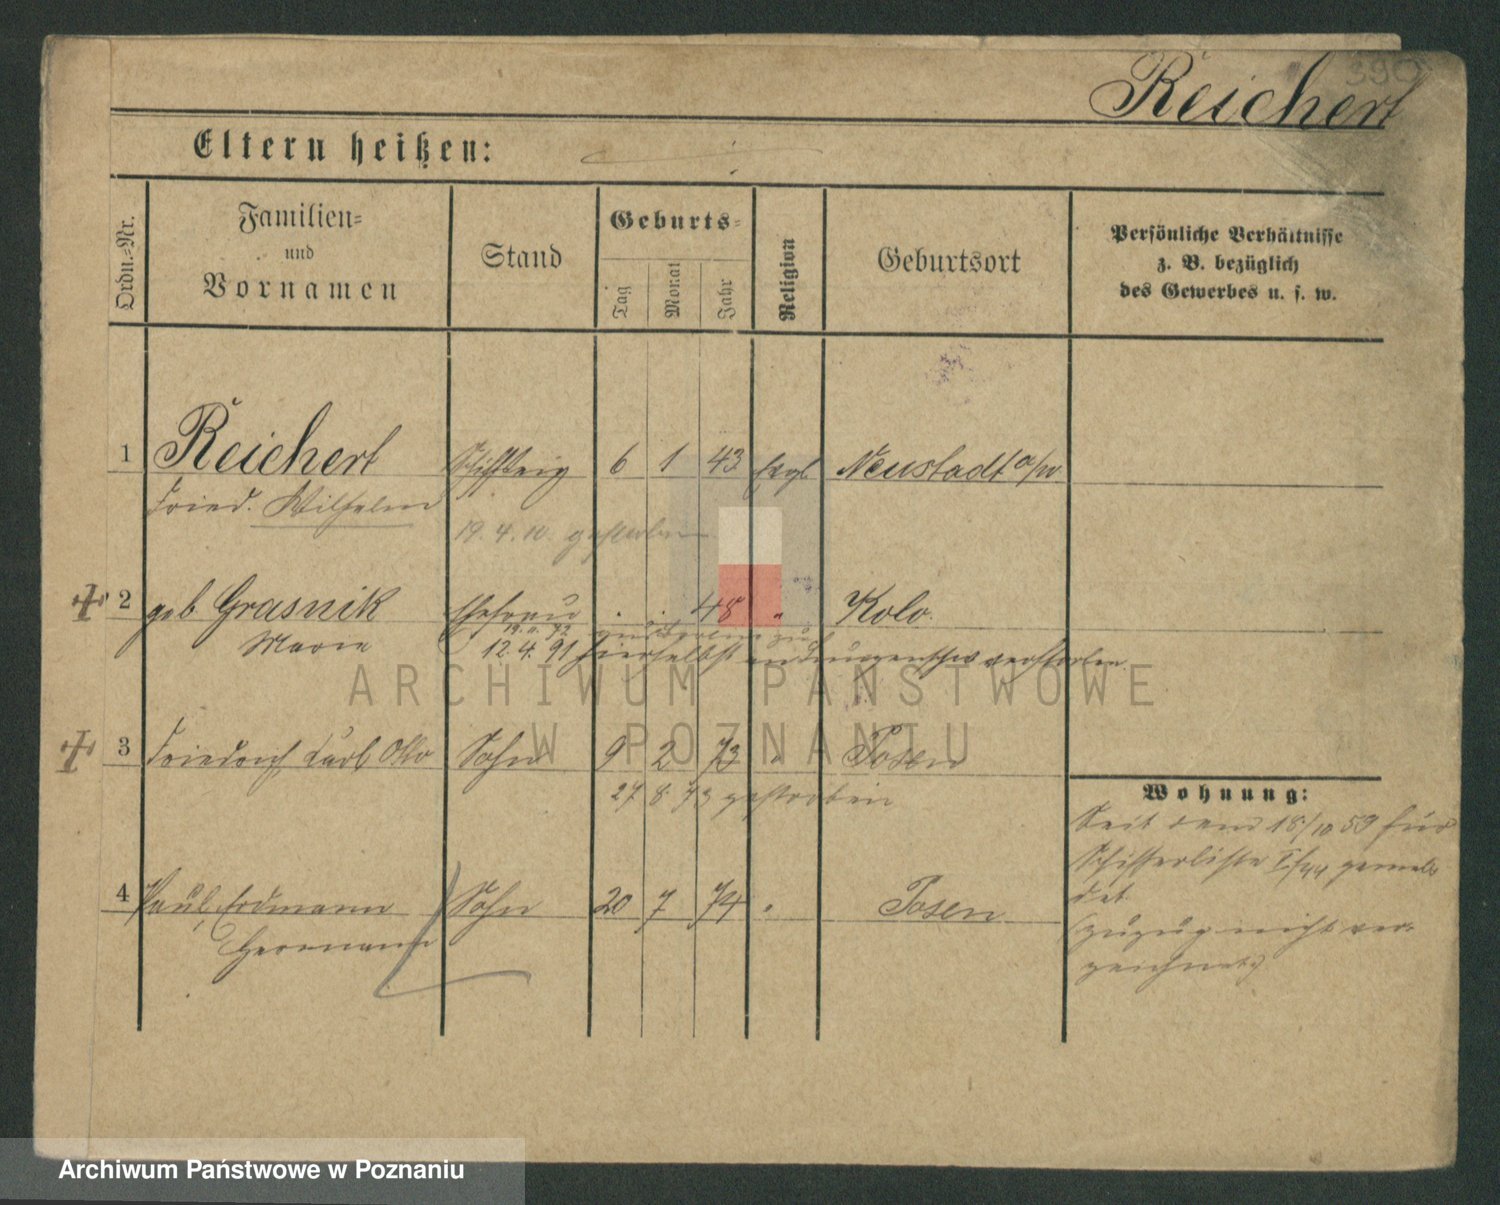 390
Reichert
Eltern heißen:
Ordn.-Nr.
Familien-
und
Vornamen
Stand
Geburts-
Tag
Monat
Jahr
Religion
Geburtsort
Persönliche Verhältnisse
z. B. bezüglich
des Gewerbes u. s. w.
1 Reichert 6 1 43 Evgl Neustadt a/W
Fried. Wilhelm
19. 4. 10. gestorben
2 geb Grasnik Ehefrau . . 48 " Kolo.
Marie
12.4.91 hierselbst an verstorben
3 Friedrich Carl Otto Sohn 9 2 73 " Posen
27 8 73 gestorben
Wohnung:
Seit dem 18/10 59 für
Schifferliste gemel-
det
4 Paul, Erdmann Sohn 20 7 74 " Posen
Herrmann
(Zuzug nicht ver-
zeichnet)
ARCHIWUM PAŃSTWOWE
W POZNANIU
Archiwum Państwowe w Poznaniu